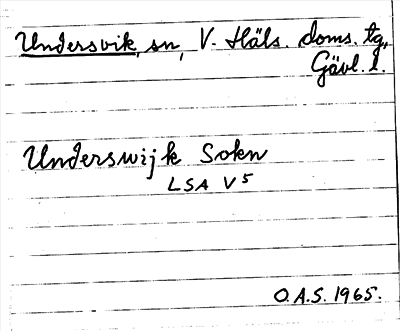 Undersvik, sn, V. Häls. doms. tg,
Gävl. l.
Underswijk Sokn
LSA V5
O.A.S. 1965.